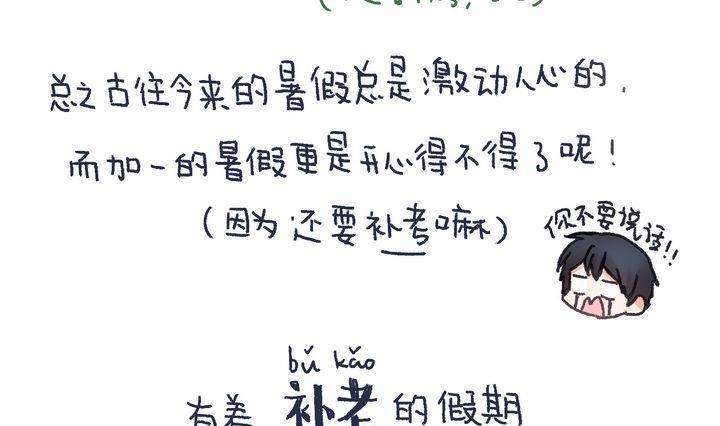 总之古往今来的暑假总是激动人心的.
而加一的暑假更是开心得不得了呢!
(因为还要补考嘛)
你不要说话!!
bǔ kǎo
有着补考的假期